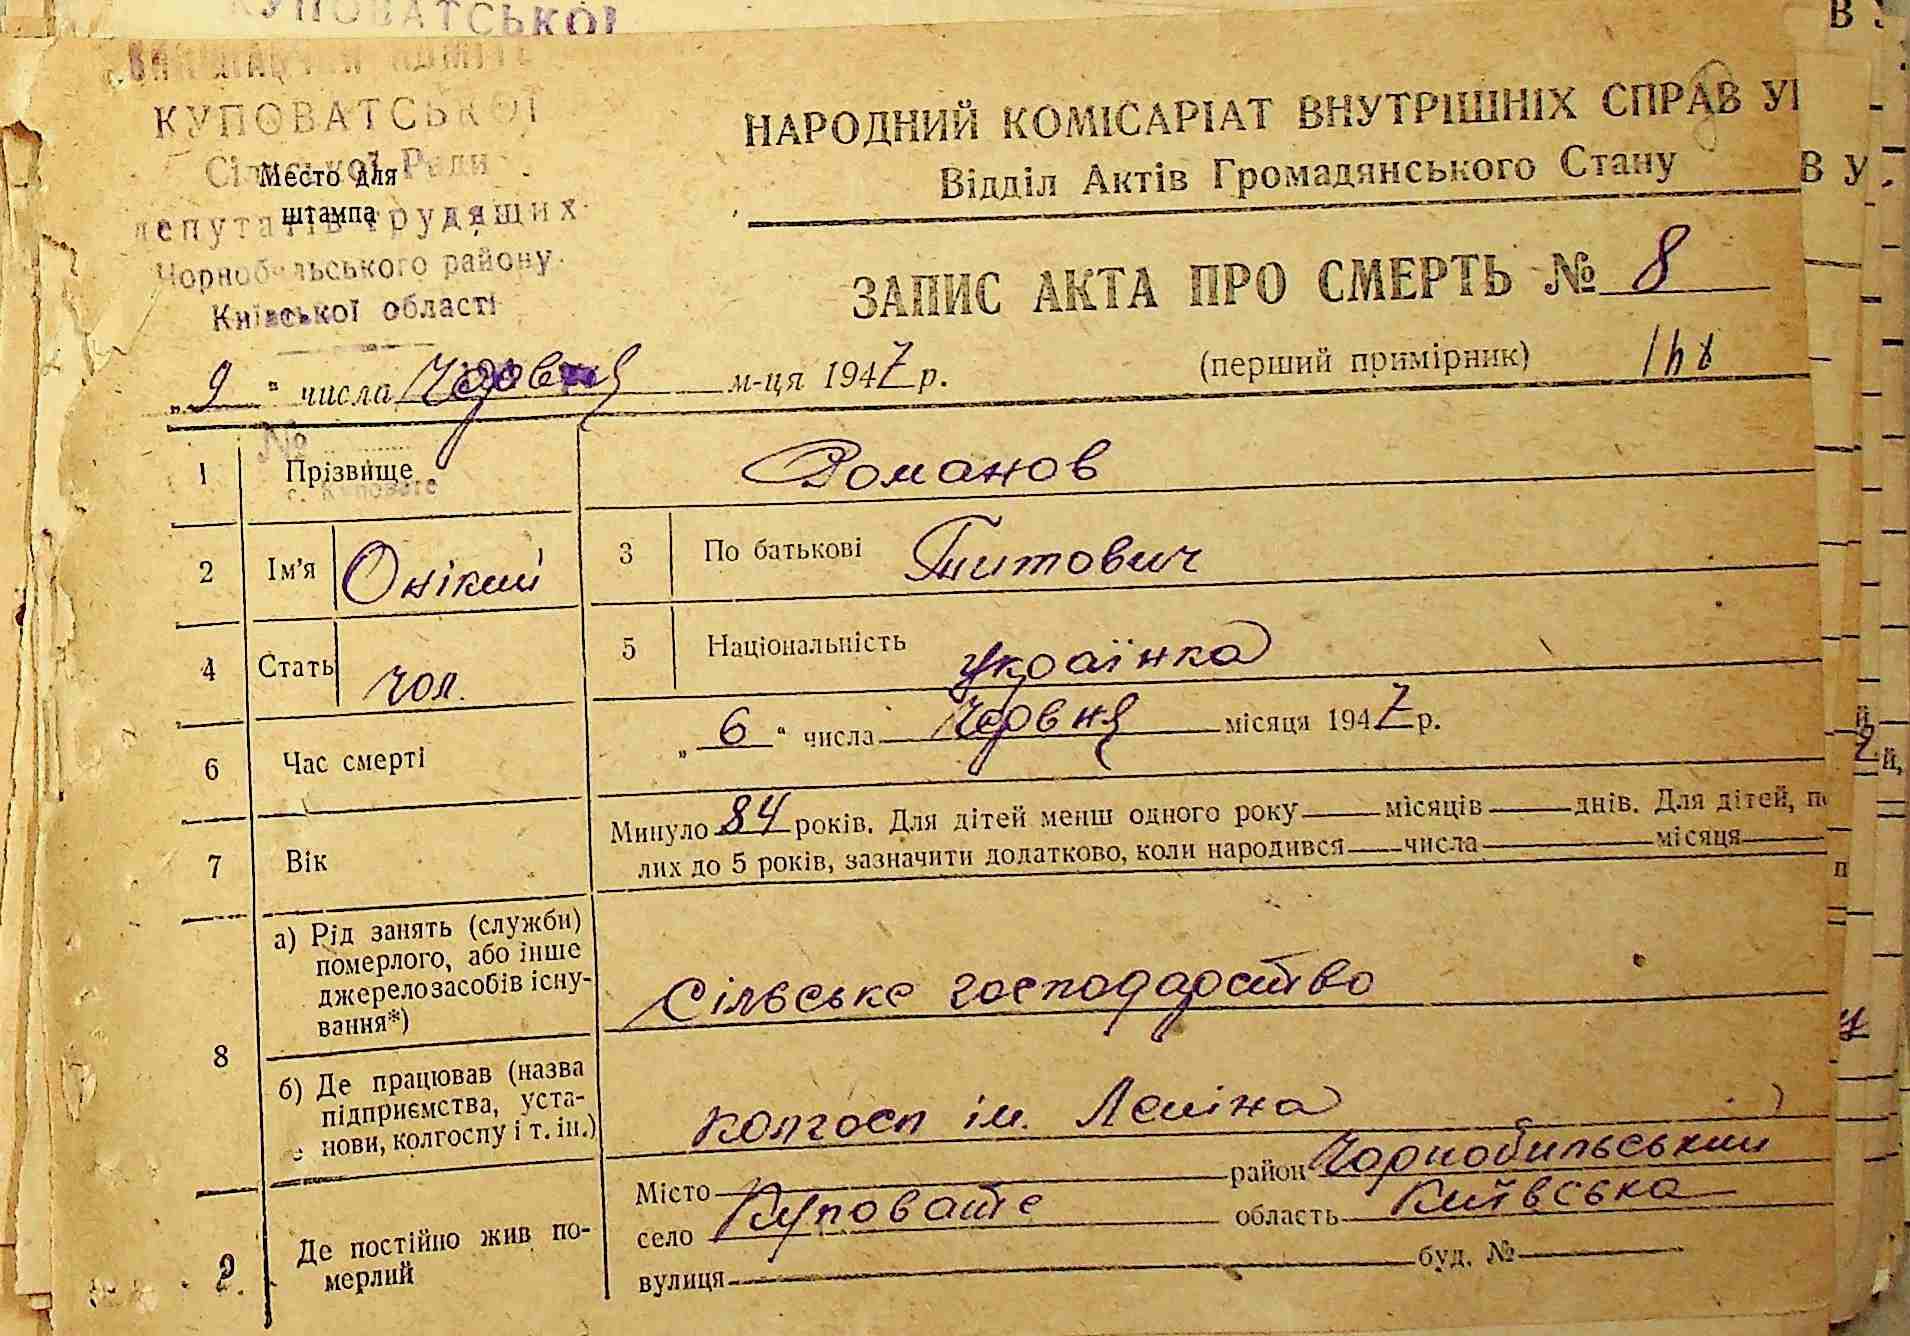 КУПОВАТСЬКОЇ
КУПОВАТСЬКОЇ
Сільської Ради
Место для
штампа
депутатів трудящих
Чорнобильського району
Київської області
НАРОДНИЙ КОМІСАРІАТ ВНУТРІШНІХ СПРАВ
Відділ Актів Громадянського Стану
ЗАПИС АКТА ПРО СМЕРТЬ № 8
„9“ числа Червня м-ця 1947 р. (перший примірник)
№
с. Куповате
1 Прізвище Романов
2 Ім'я Онікий 3 По батькові Титович
4 Стать чол. 5 Національність українка
6 Час смерті „6“ числа Червня місяця 1947 р.
7 Вік Минуло 84 років. Для дітей менш одного року — місяців — днів. Для дітей,
лих до 5 років, зазначити додатково, коли народився — числа — місяця —
8 а) Рід занять (служби)
померлого, або інше
джерело засобів існу-
вання*) Сільське господарство
б) Де працював (назва
підприємства, уста-
нови, колгоспу і т. ін.) колгосп ім. Леніна
9 Де постійно жив по-
мерлий
Місто — район Чорнобильський
село Куповате область Київська
вулиця — буд. № —